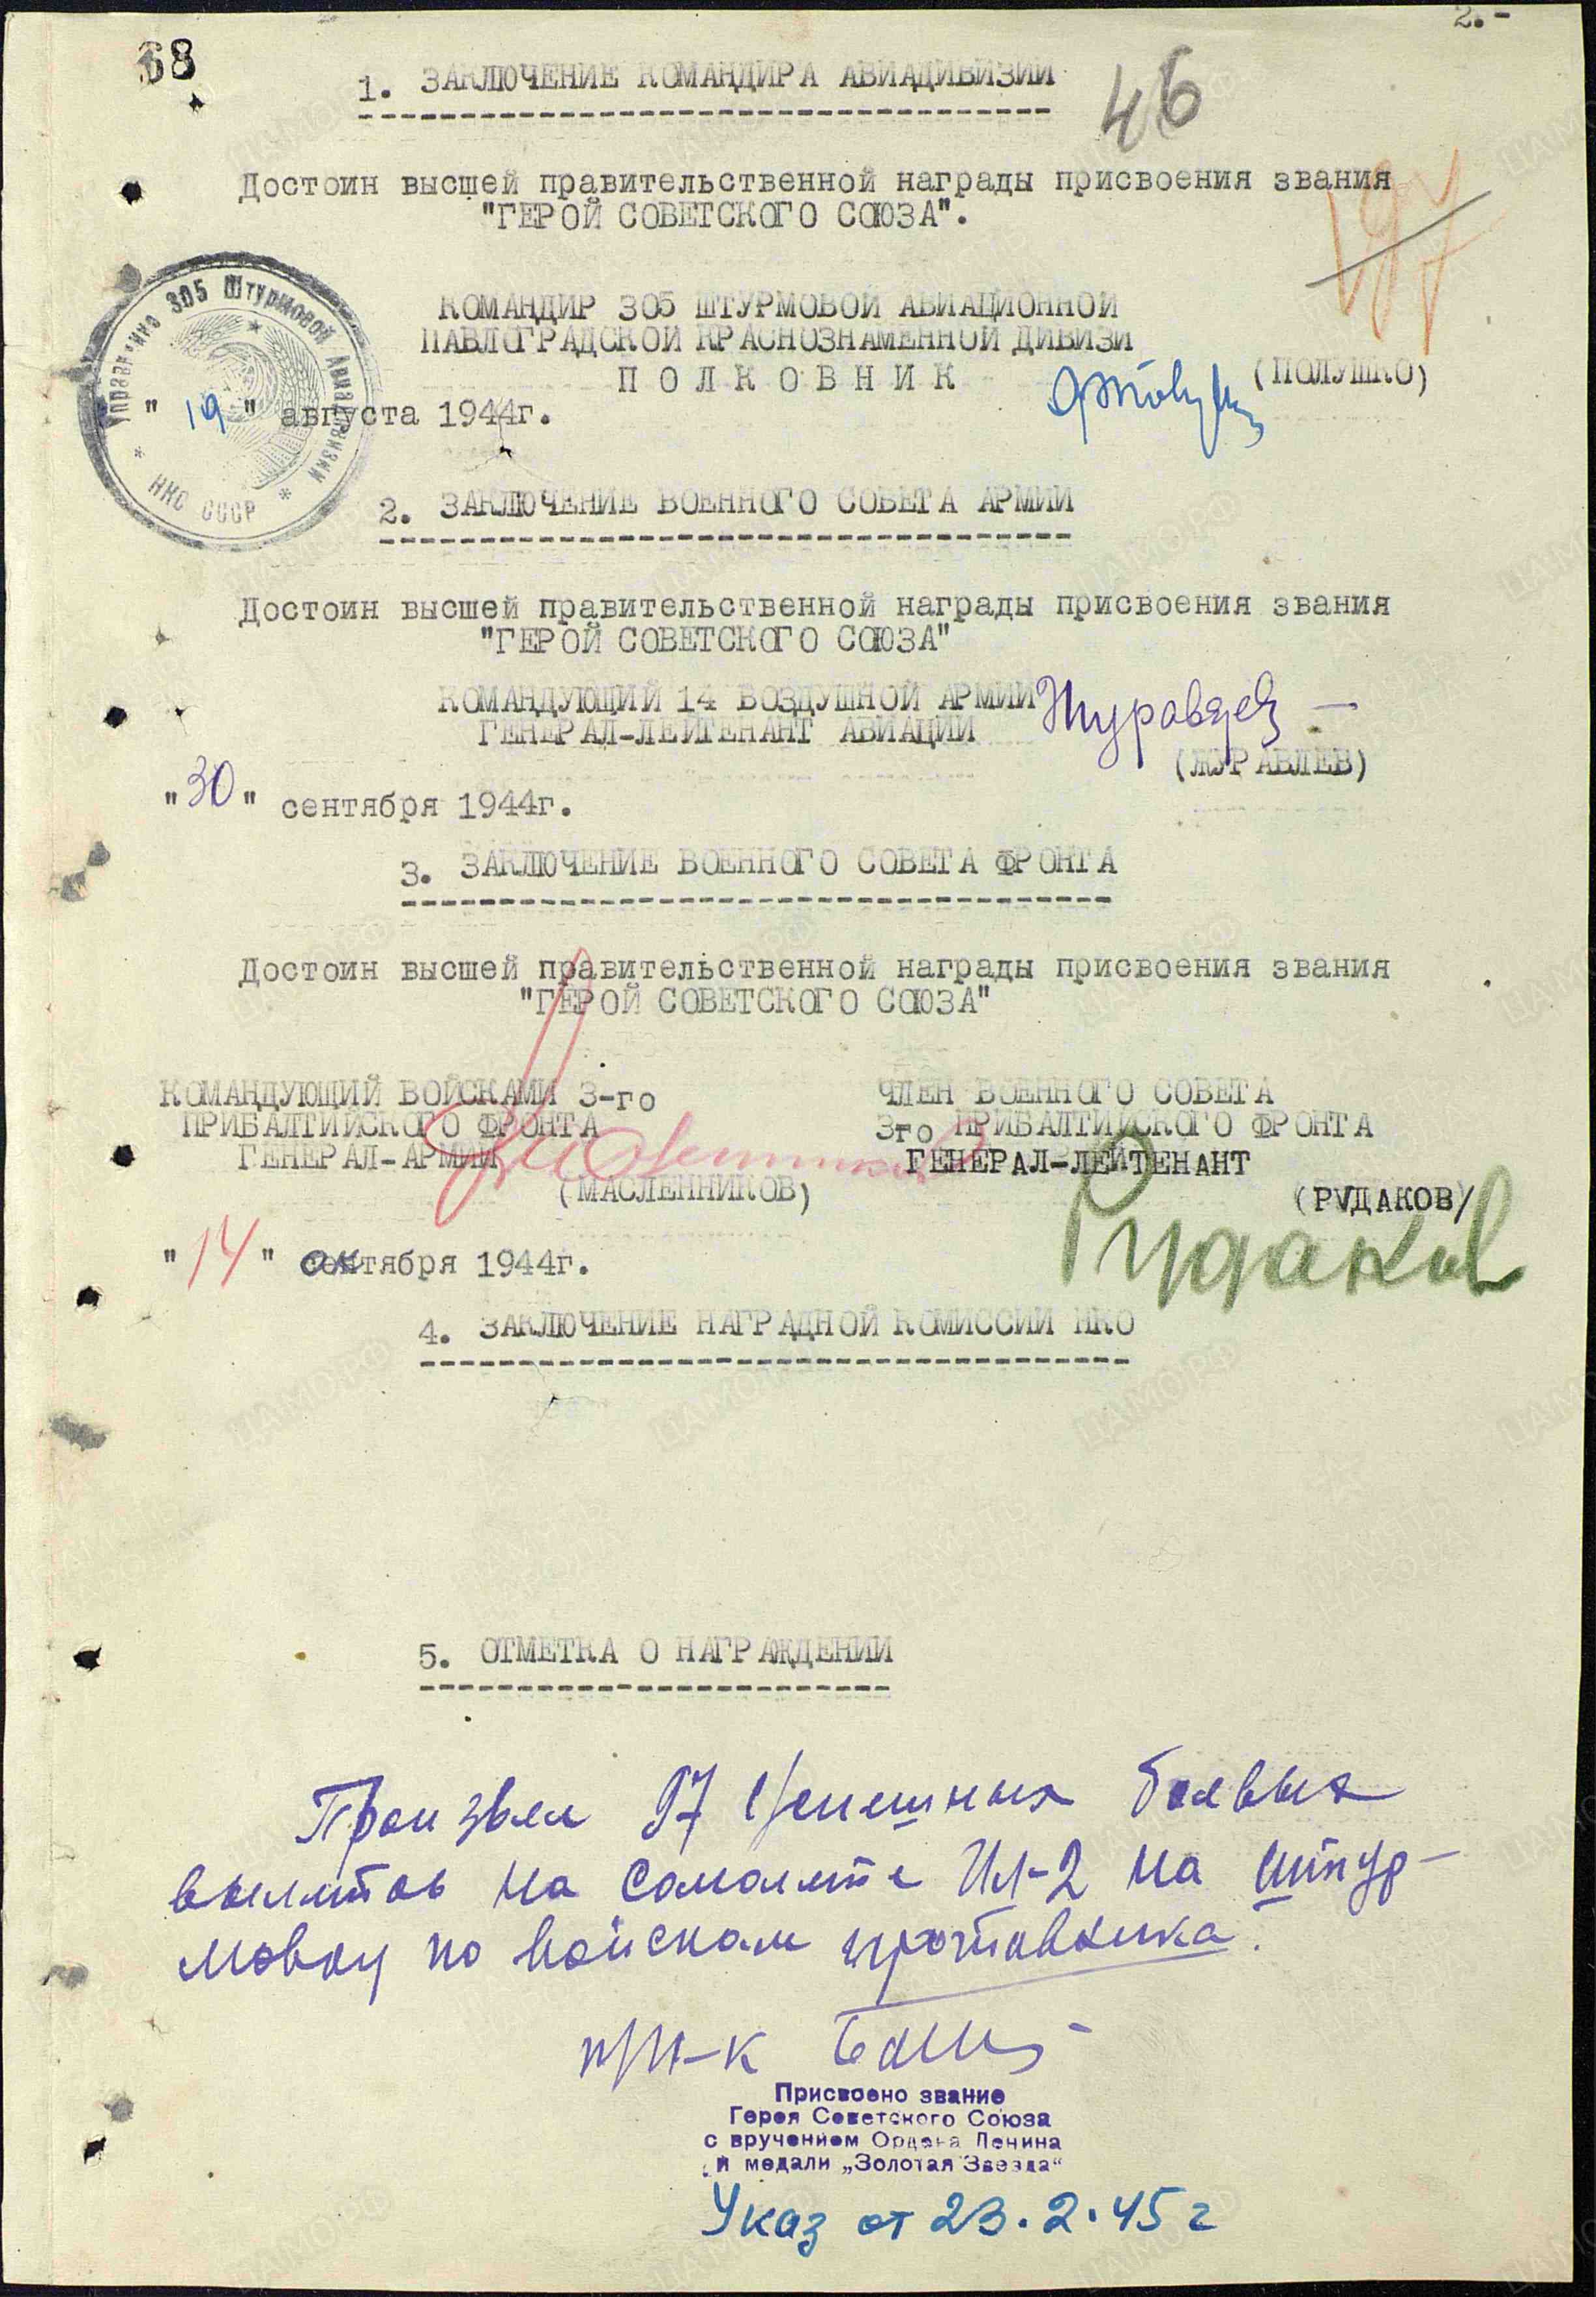 2.-
68
1. ЗАКЛЮЧЕНИЕ КОМАНДИРА АВИАДИВИЗИИ
46
Достоин высшей правительственной награды присвоения звания
"ГЕРОЙ СОВЕТСКОГО СОЮЗА".
197
КОМАНДИР 305 ШТУРМОВОЙ АВИАЦИОННОЙ
ПАВЛОГРАДСКОЙ КРАСНОЗНАМЕННОЙ ДИВИЗИ
ПОЛКОВНИК
(ПОЛУШКО)
Управление 305 Штурмовой Авиадивизии
НКО СССР
"19" августа 1944г.
2. ЗАКЛЮЧЕНИЕ ВОЕННОГО СОВЕТА АРМИИ
Достоин высшей правительственной награды присвоения звания
"ГЕРОЙ СОВЕТСКОГО СОЮЗА"
КОМАНДУЮЩИЙ 14 ВОЗДУШНОЙ АРМИИ Журавлев
ГЕНЕРАЛ-ЛЕЙТЕНАНТ АВИАЦИИ
(ЖУРАВЛЕВ)
"30" сентября 1944г.
3. ЗАКЛЮЧЕНИЕ ВОЕННОГО СОВЕТА ФРОНТА
Достоин высшей правительственной награды присвоения звания
"ГЕРОЙ СОВЕТСКОГО СОЮЗА"
КОМАНДУЮЩИЙ ВОЙСКАМИ 3-го
ПРИБАЛТИЙСКОГО ФРОНТА
ГЕНЕРАЛ-АРМИИ
(МАСЛЕННИКОВ)
ЧЛЕН ВОЕННОГО СОВЕТА
3го ПРИБАЛТИЙСКОГО ФРОНТА
ГЕНЕРАЛ-ЛЕЙТЕНАНТ
(РУДАКОВ/
Рудаков
"14" октября 1944г.
4. ЗАКЛЮЧЕНИЕ НАГРАДНОЙ КОМИССИИ НКО
5. ОТМЕТКА О НАГРАЖДЕНИИ
Произвел 97 успешных боевых
вылетов на самолете Ил-2 на штур-
мовку по войскам противника.
п/п-к
Присвоено звание
Героя Советского Союза
с вручением Ордена Ленина
и медали „Золотая Звезда"
Указ от 23.2.45 г